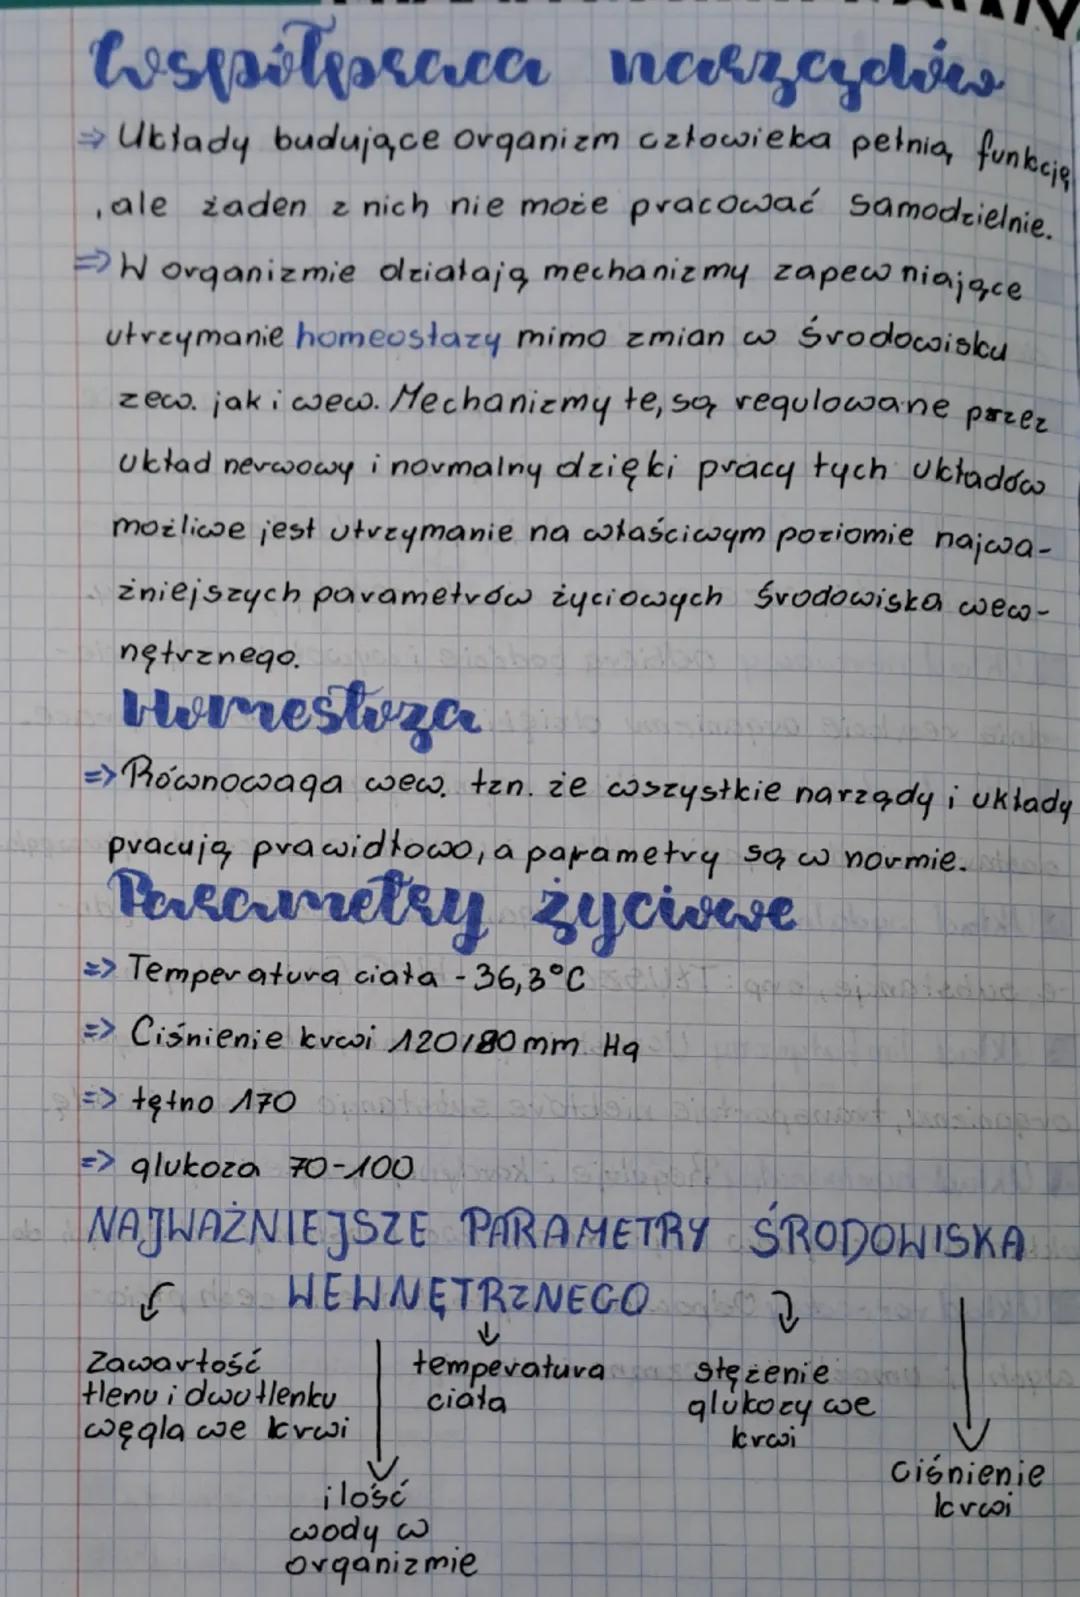 Współpraca narządów
⇒ Układy budujące organizm człowieka pełnią funkcję
, ale żaden z nich nie może pracować samodzielnie.
⇒ W organizmie działają mechanizmy zapewniające
utrzymanie homeostazy mimo zmian w środowisku
zew. jak i wew. Mechanizmy te, są regulowane przez
układ nerwowy i normalny dzięki pracy tych układów
możliwe jest utrzymanie na właściwym poziomie najwa-
żniejszych parametrów życiowych środowiska wew-
nętrznego.
Homestaza
=> Równowaga wew. tzn. że wszystkie narządy i układy
pracują prawidłowo, a parametry są w normie.
Parametry życiowe
=> Temperatura ciała - 36,3°C
=> Ciśnienie krwi 120/80 mm Hg
=> tętno 170
=> glukoza 70-100
NAJWAŻNIEJSZE PARAMETRY ŚRODOWISKA
WEWNĘTRZNEGO
Zawartość
tlenu i dwutlenku
węgla we krwi
ilość
wody w
organizmie
temperatura
ciała
stężenie
glukozy we
krwi
ciśnienie
krwi